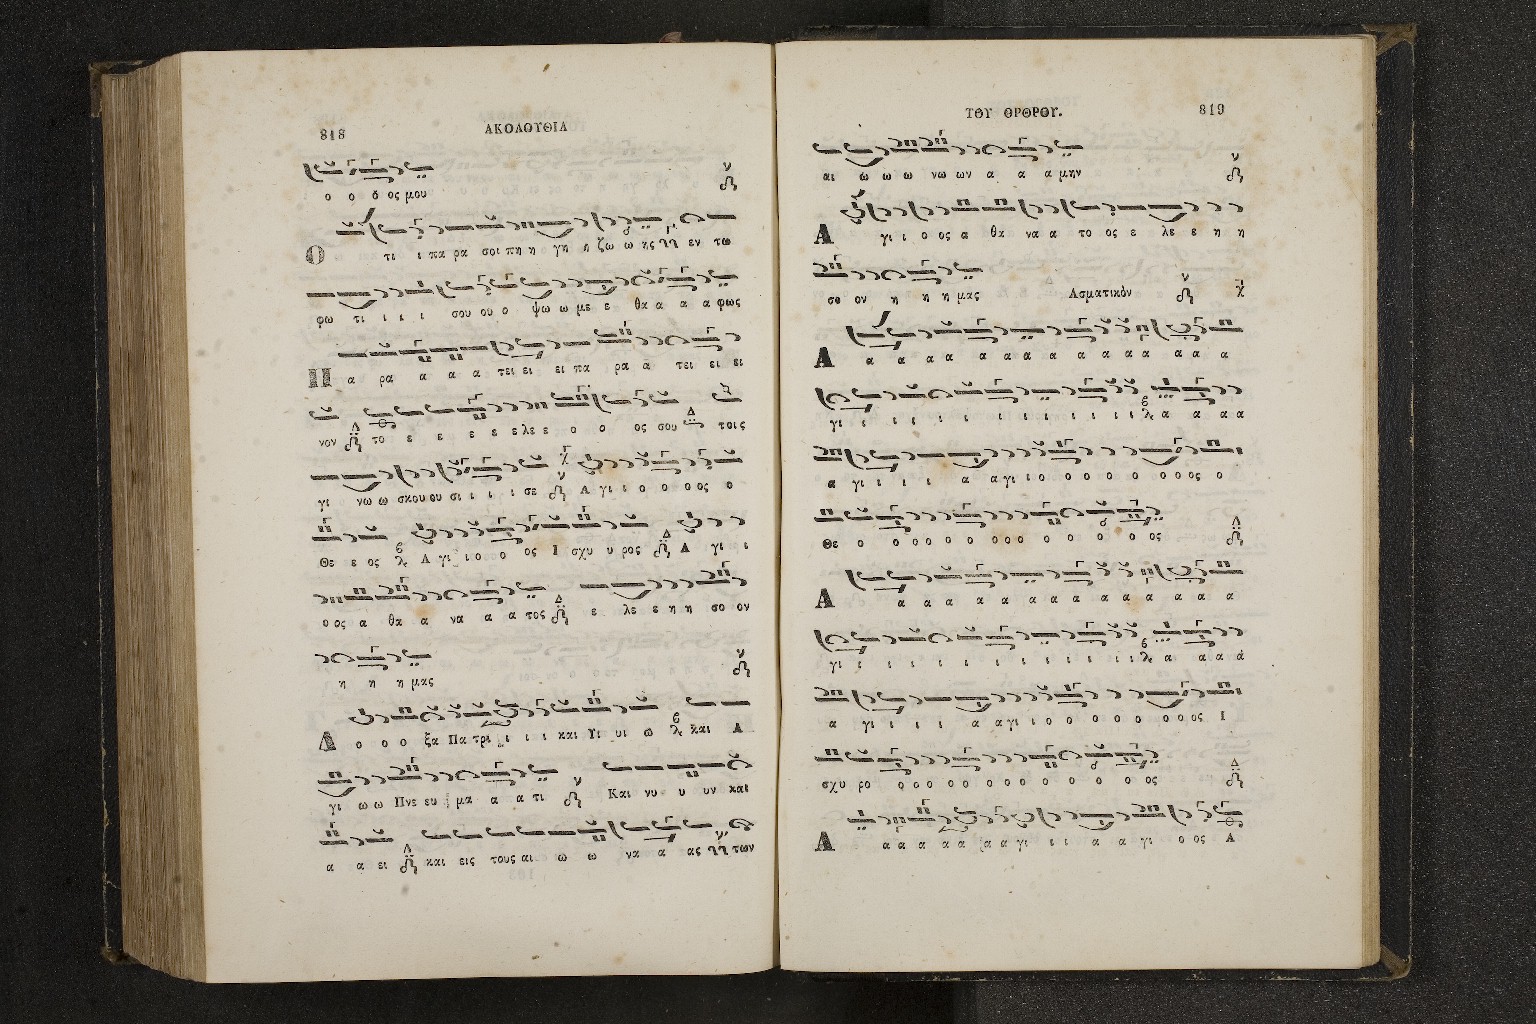 818
ΑΚΟΛΟΥΘΙΑ
ο ο ο ος μου
Ο τι ι πα ρα σοι πη η γη η ζω ω ης εν τω
φω τι ι ι ι σου ου ο ψω ω με ε θα α α α φως
Π α ρα α α α τει ει ει πα ρα α τει ει ει
νον το ε ε ε ε ε λε ε ο ο ος σου τοις
γι νω ω σκου ου σι ι ι ι σε Α γι ι ο ο ο ος ο
Θε ε ος Α γι ι ο ο ο ος Ι σχυ υ ρος Α γι ι
ο ος α θα α να α α τος ε λε ε η η σο ον
η η η μας
Δ ο ο ο ξα Πα τρι ι ι ι και Υι υι ω και Α
γι ω ω Πνε ευ μα α α τι Και νυ υ υν και
α α ει και εις τους αι ω ω να α ας των
ΤΟΥ ΟΡΘΡΟΥ.
819
αι ω ω ω νω ων α α α μην
Α γι ι ο ος α θα να α το ος ε λε ε η η
σο ον η η η μας Ασματικὸν
Α α α α α α α α α α α α α α α α
γι ι ι ι ι ι ι ι ι ι ι ι α α α α
α γι ι ι ι α α γι ι ο ο ο ο ο ο ο ος ο
Θε ο ο ο ο ο ο ο ο ο ο ο ο ο ο ος
Α α α α α α α α α α α α α α
γι ι ι ι ι ι ι ι ι ι ι ι α α α α
α γι ι ι ι α α γι ι ο ο ο ο ο ο ο ος Ι
σχυ ρο ο ο ο ο ο ο ο ο ο ο ο ο ος
Α α α α α α α α γι ι ι α α γι ο ος Α